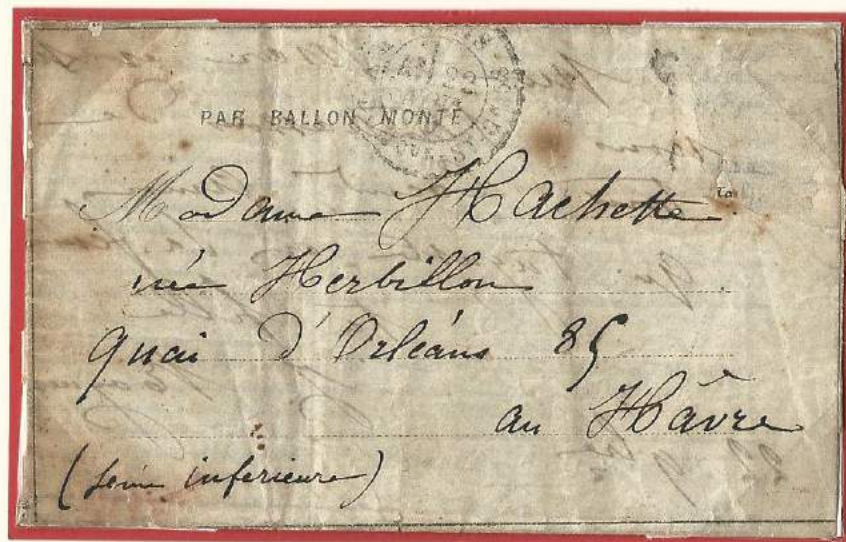 PAR BALLON MONTÉ
Madame Hachette
née Herbillon
quai d'Orléans 85
au Hâvre
(Seine inférieure)